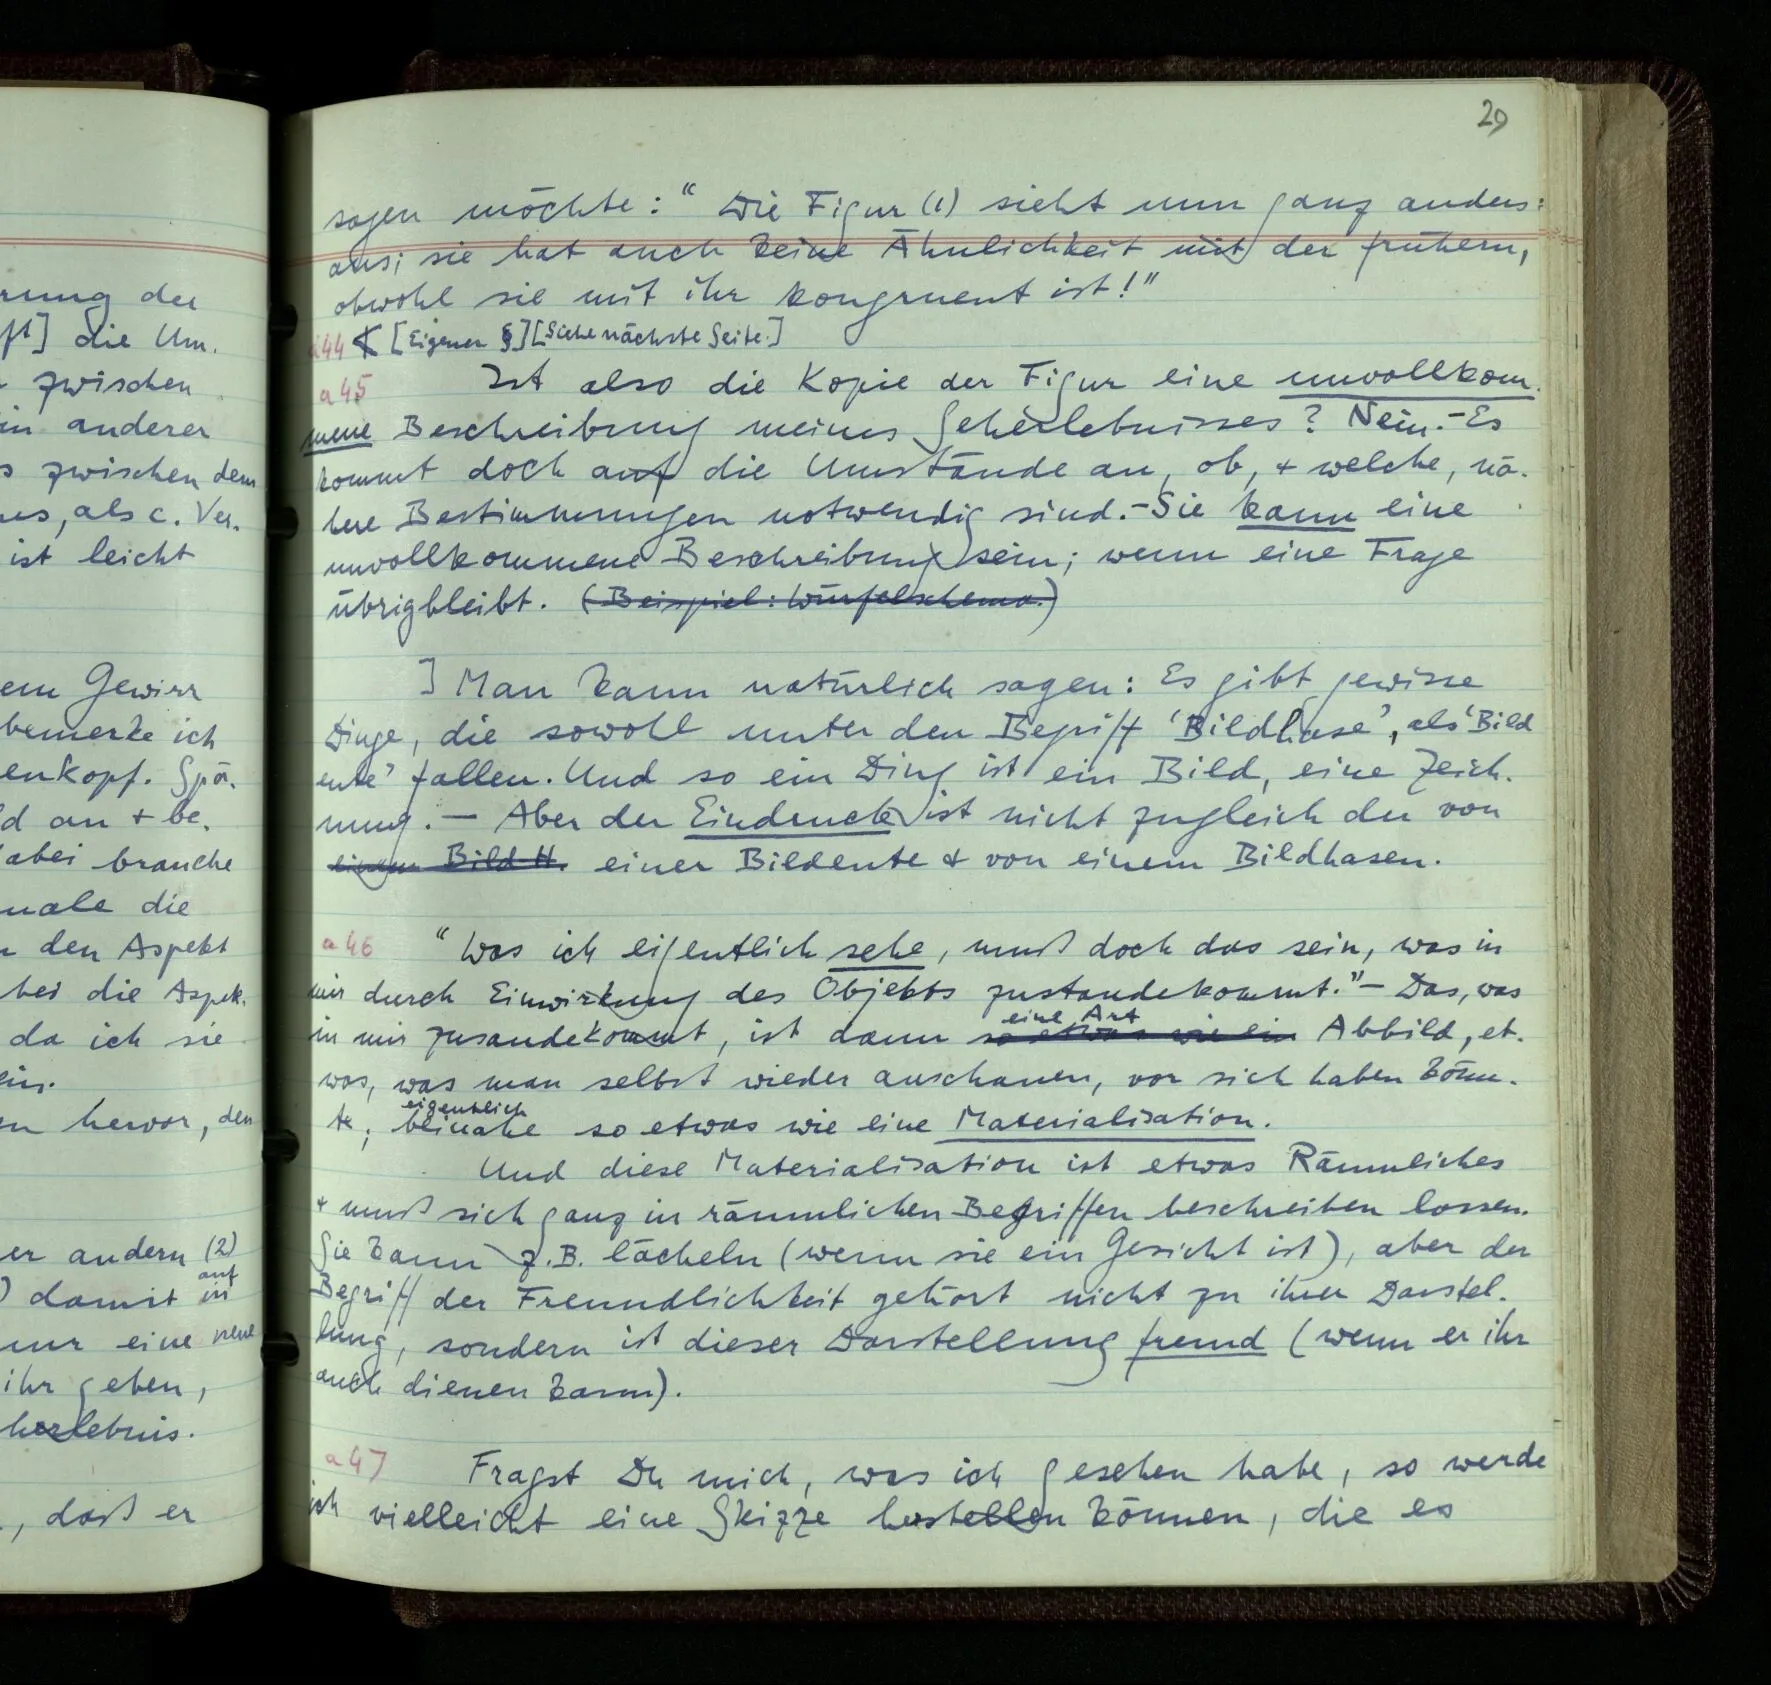 rung der
ft] die Um.
zwischen
in anderer
s zwischen dem
es, als c. Ver.
ist leicht
em Gewirr
bemerke ich
enkopf. Spä.
d an + be.
abei brauche
male die
den Aspekt
bei die Aspek.
da ich sie
ein.
en hervor, den
er andern (2)
auf
) damit in
nur eine neue
ihr geben,
herlebnis.
, daß er
29
sagen möchte: “Die Figur (1) sieht nun ganz anders
aus; sie hat auch keine Ähnlichkeit mit der frühern,
obwohl sie mit ihr kongruent ist!”
a44 [Eigener §] [Siehe nächste Seite.]
a45 Ist also die Kopie der Figur eine unvollkom.
mene Beschreibung meines Seherlebnisses? Nein. – Es
kommt doch auf die Umstände an, ob, + welche, nä.
here Bestimmungen notwendig sind. – Sie kann eine
unvollkommene Beschreibung sein; wenn eine Frage
übrigbleibt. (Beispiel: Würfelschema.)
] Man kann natürlich sagen: Es gibt gewisse
Dinge, die sowohl unter den Begriff ‘Bildhase’, als ‘Bild
ente’ fallen. Und so ein Ding ist ein Bild, eine Zeich.
nung. — Aber der Eindruck ist nicht zugleich der von
einem Bild H. einer Bildente & von einem Bildhasen.
a46 “Was ich eigentlich sehe, muß doch das sein, was in
mir durch Einwirkung des Objekts zustandekommt.” – Das, was
eine Art
in mir zusandekommt, ist dann so etwas wie ein Abbild, et.
was, was man selbst wieder anschauen, vor sich haben könn.
eigentlich
te; beinahe so etwas wie eine Materialisation.
Und diese Materialisation ist etwas Räumliches
+ muß sich ganz in räumlichen Begriffen beschreiben lassen.
Sie kann z.B. lächeln (wenn sie ein Gesicht ist), aber der
Begriff der Freundlichkeit gehört nicht zu ihrer Darstel.
lung, sondern ist dieser Darstellung fremd (wenn er ihr
auch dienen kann).
a47 Fragst Du mich, was ich gesehen habe, so werde
ich vielleicht eine Skizze herstellen können, die es